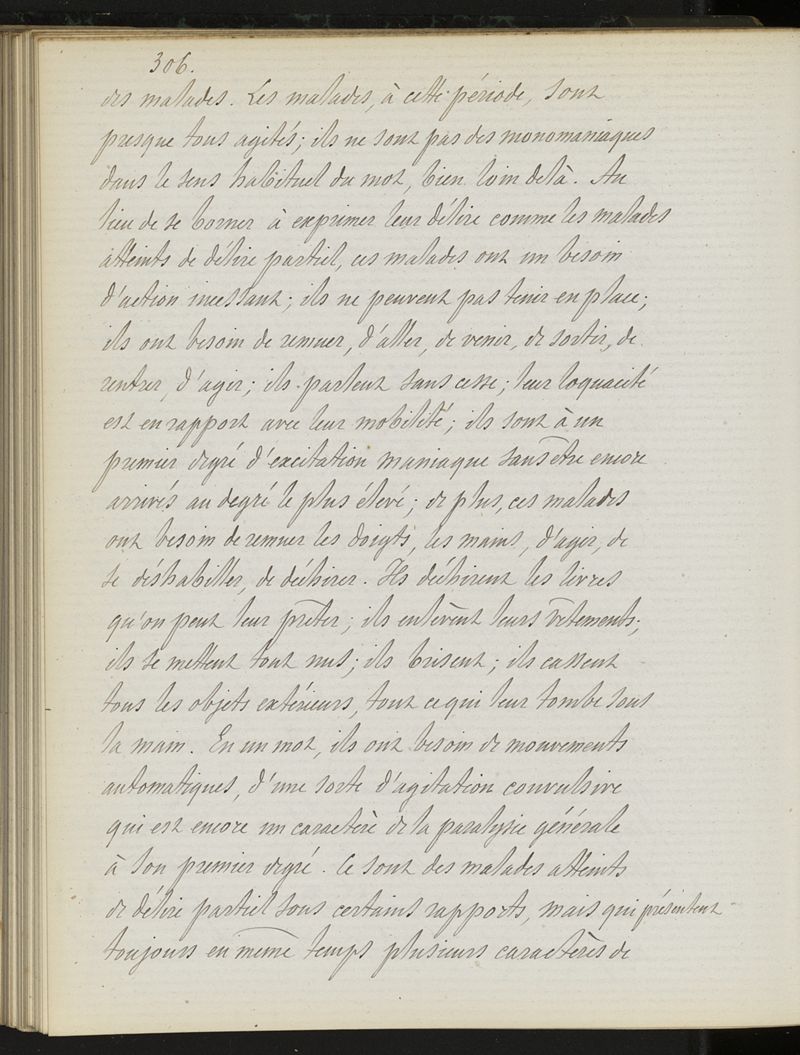 306.
des malades. Les malades, à cette période, sont
presque tous agités; ils ne sont pas des monomaniaques
dans le sens habituel du mot, bien loin delà. Au
lieu de se borner à exprimer leur délire comme les malades
atteints de délire partiel, ces malades ont un besoin
d'action incessant; ils ne peuvent pas tenir en place;
ils ont besoin de remuer, d'aller, de venir, de sortir, de
rentrer, d'agir; ils parlent sans cesse; leur loquacité
est en rapport avec leur mobilité; ils sont à un
premier degré d'excitation maniaque sans être encore
arrivés au degré le plus élevé; de plus, ces malades
ont besoin de remuer les doigts, les mains, d'agir, de
se déshabiller, de déchirer. Ils déchirent les livres
qu'on peut leur prêter; ils enlèvent leurs vêtements;
ils se mettent tout nus; ils brisent; ils cassent
tous les objets extérieurs, tout ce qui leur tombe sous
la main. En un mot, ils ont besoin de mouvements
automatiques, d'une sorte d'agitation convulsive
qui est encore un caractère de la paralysie générale
à son premier degré. Ce sont des malades atteints
de délire partiel sous certains rapports, mais qui présentent
toujours en même temps plusieurs caractères de